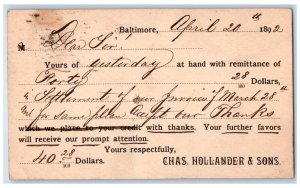 Baltimore, April 20th 1892
M. Dear Sir
Yours of yesterday at hand with remittance of
Forty 28/100 Dollars,
in Settlement of our Invoice of March 28th
and for same please accept our Thanks
which we place to your credit with thanks. Your further favors
will receive our prompt attention.
Yours respectfully,
40 28/100 Dollars. CHAS. HOLLANDER & SONS.